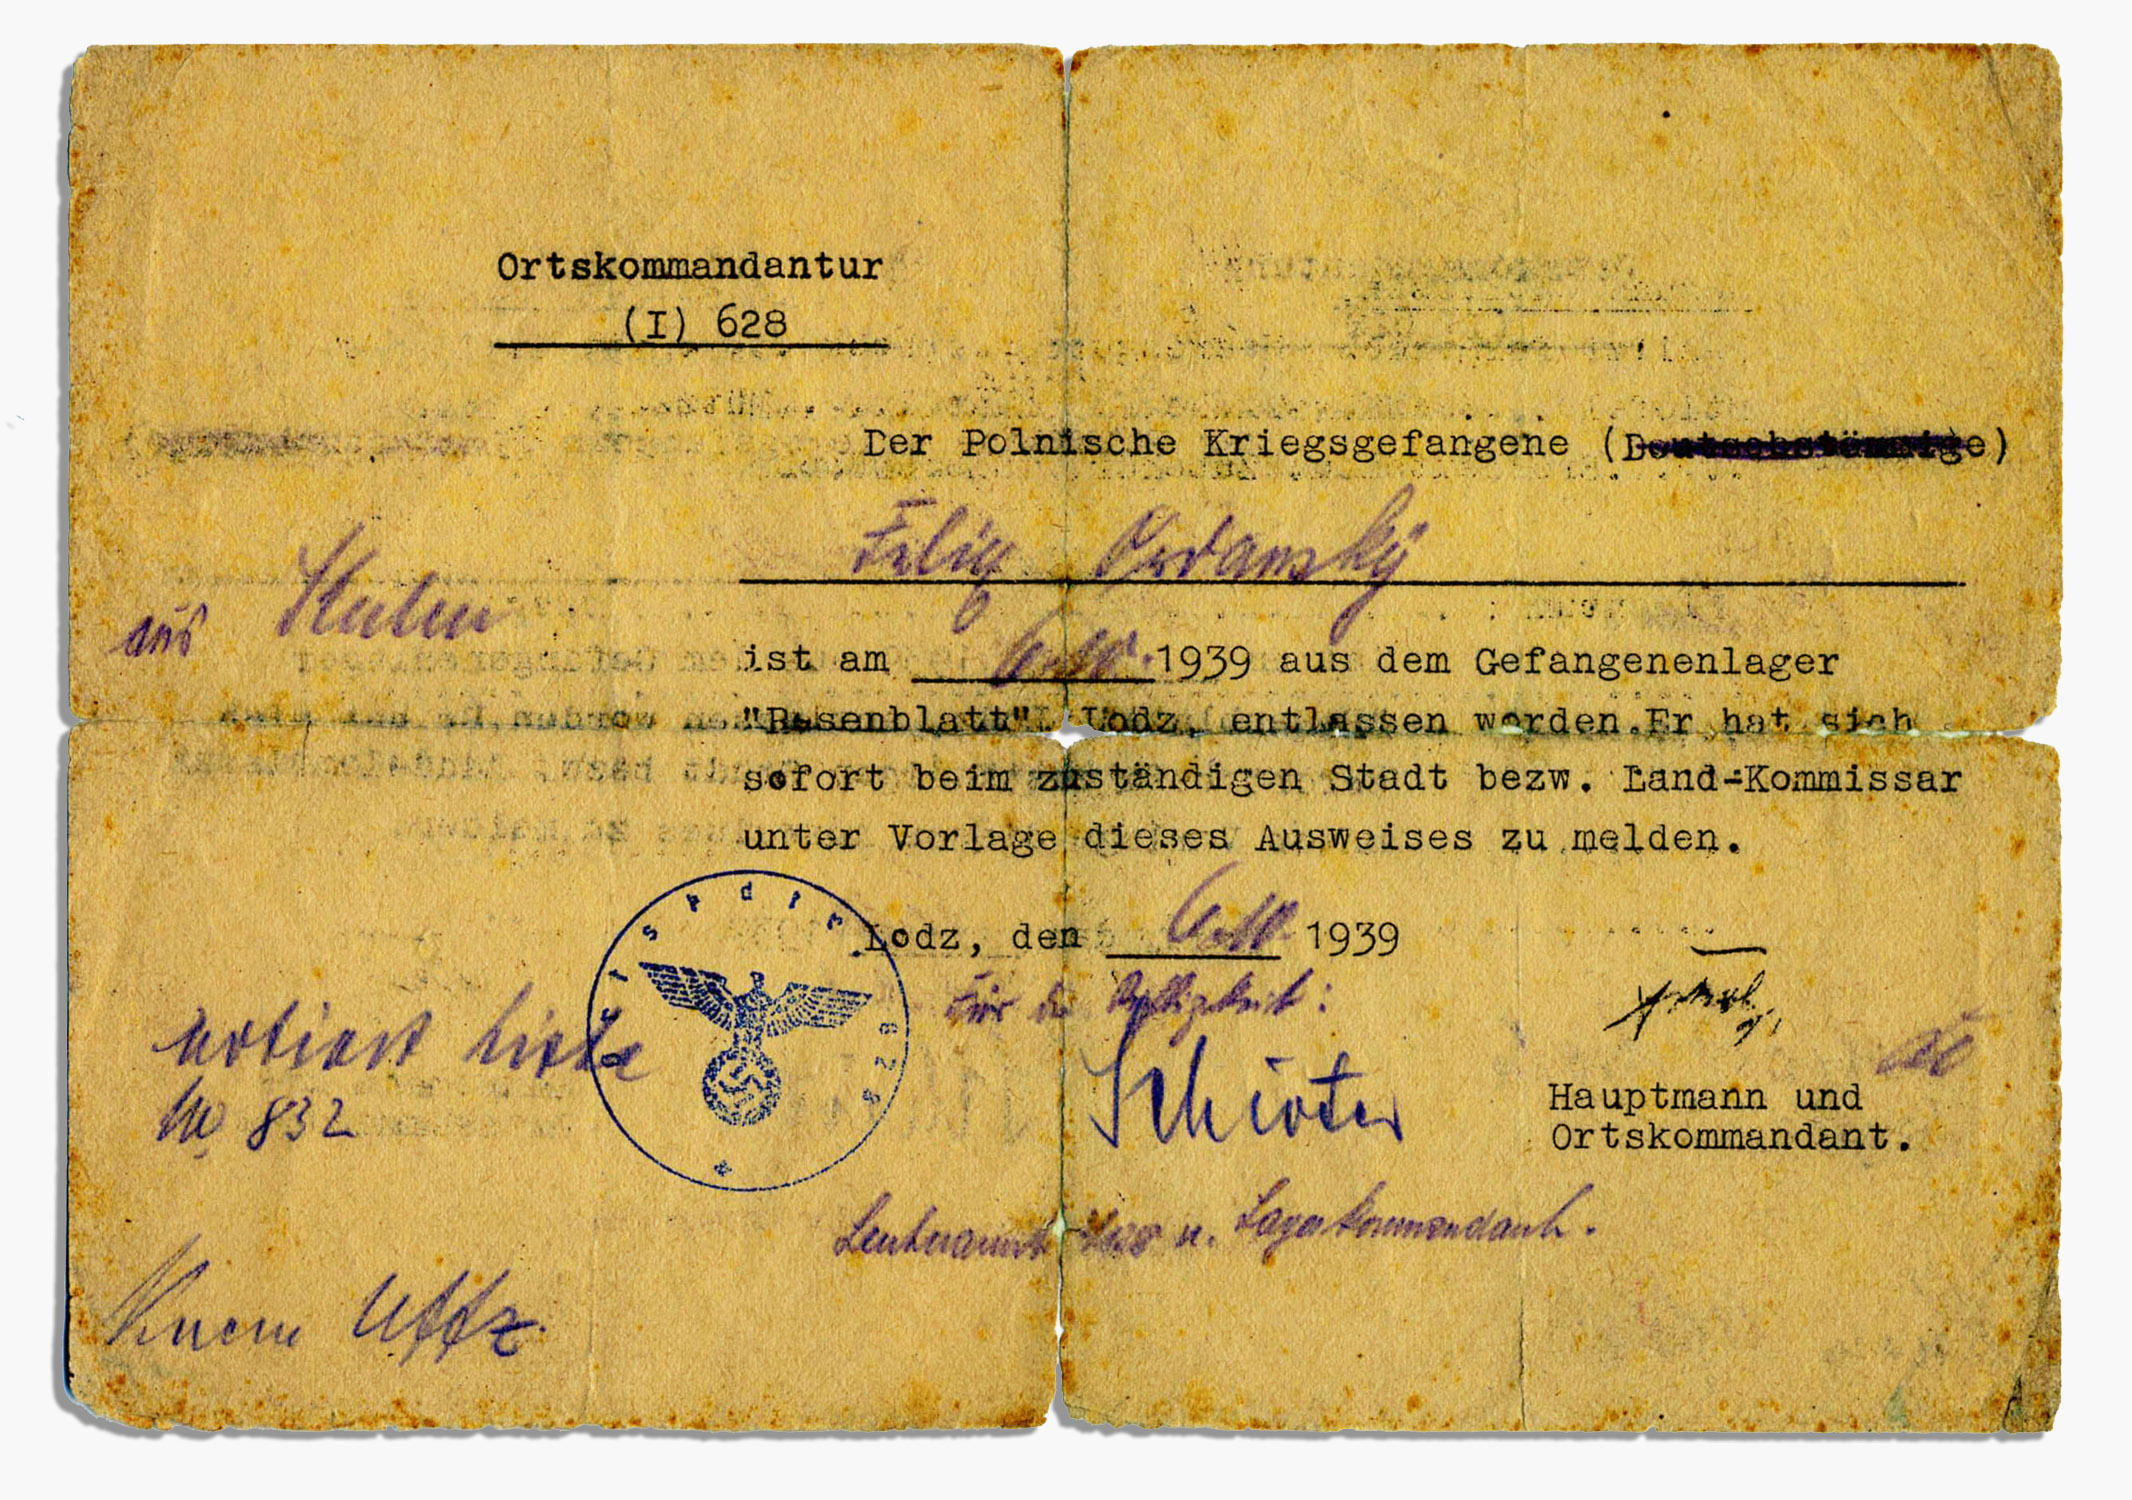 Ortskommandantur
(I) 628
Der Polnische Kriegsgefangene (Deutschstämmige)
Felix Ordansky
aus
ist am 6.10. 1939 aus dem Gefangenenlager
"Rosenblatt" Lodz, entlassen worden.Er hat sich
sofort beim zuständigen Stadt bezw. Land-Kommissar
unter Vorlage dieses Ausweises zu melden.
Lodz, den 6.10. 1939
Für die Richtigkeit:
notiert Liste
No 832
Schröter
Hauptmann und
Ortskommandant.
Leutnant u. Lagerkommandant.
Uffz.